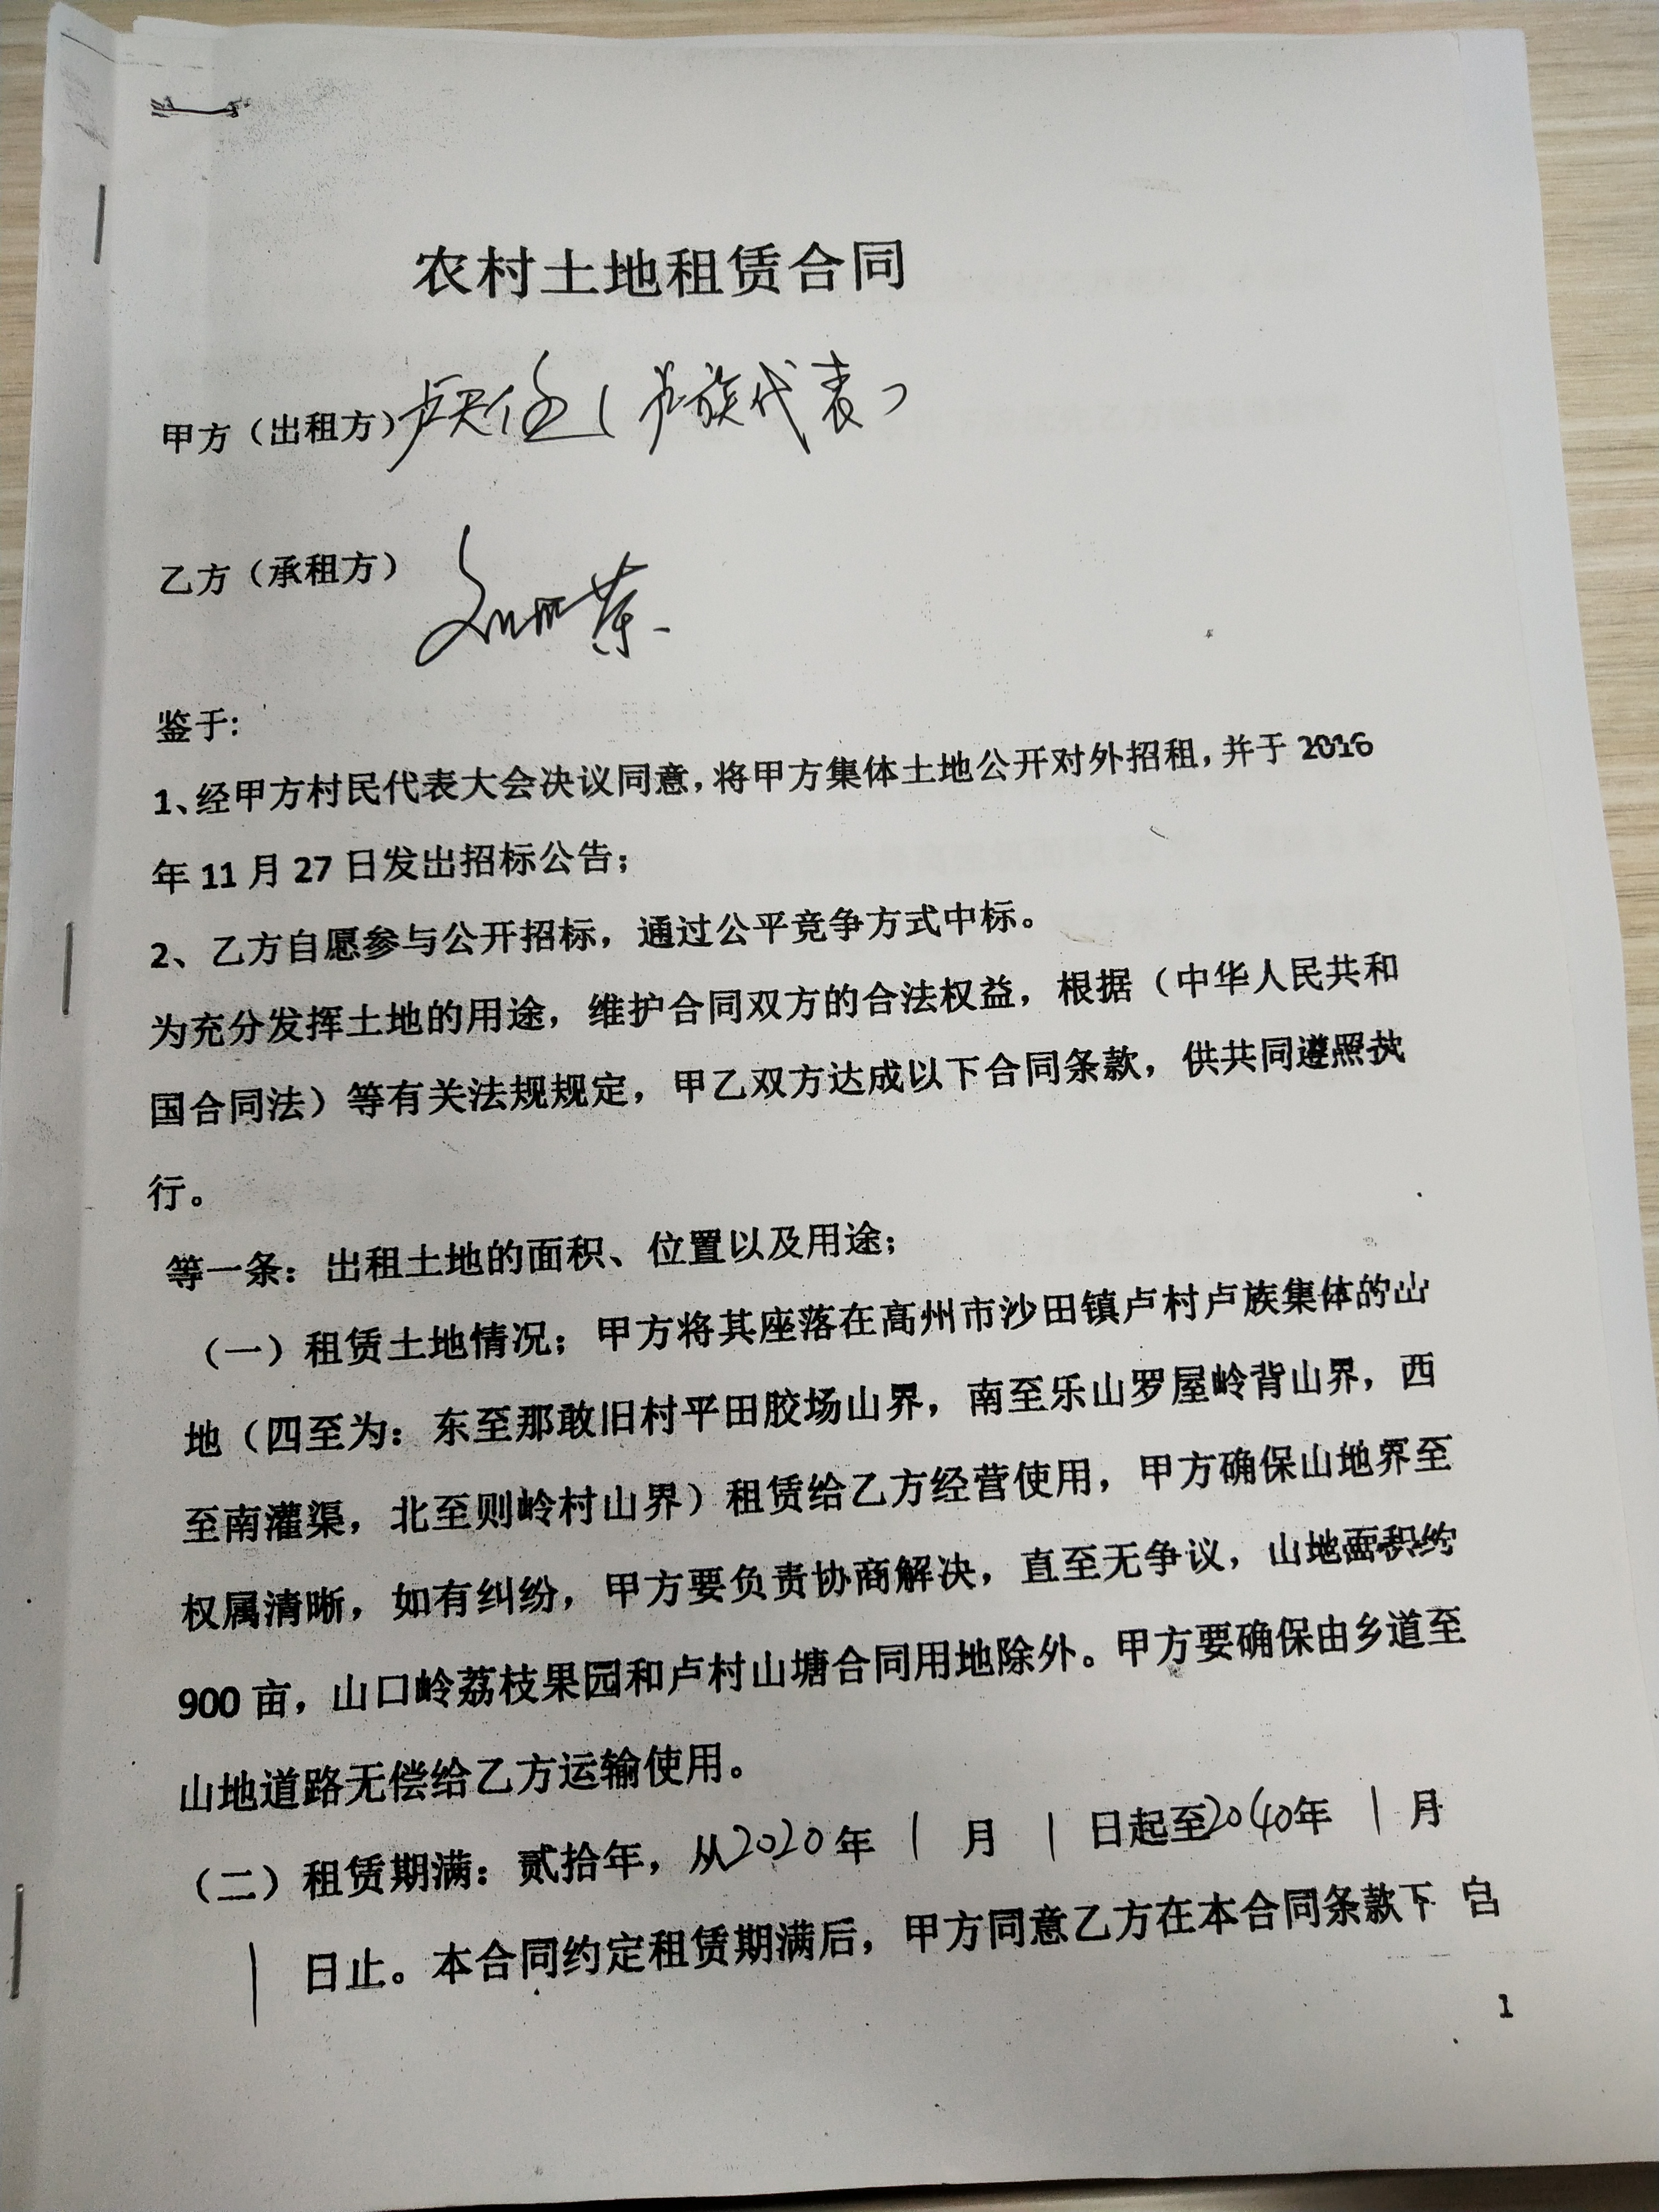 农村土地租赁合同
甲方（出租方）卢天任（卢族代表）
乙方（承租方）
鉴于:
1、经甲方村民代表大会决议同意，将甲方集体土地公开对外招租，并于2016
年11月27日发出招标公告；
2、乙方自愿参与公开招标，通过公平竞争方式中标。
为充分发挥土地的用途，维护合同双方的合法权益，根据（中华人民共和
国合同法）等有关法规规定，甲乙双方达成以下合同条款，供共同遵照执
行。
等一条：出租土地的面积、位置以及用途；
（一）租赁土地情况；甲方将其座落在高州市沙田镇卢村卢族集体的山
地（四至为：东至那敢旧村平田胶场山界，南至乐山罗屋岭背山界，西
至南灌渠，北至则岭村山界）租赁给乙方经营使用，甲方确保山地界至
权属清晰，如有纠纷，甲方要负责协商解决，直至无争议，山地面积约
900亩，山口岭荔枝果园和卢村山塘合同用地除外。甲方要确保由乡道至
山地道路无偿给乙方运输使用。
（二）租赁期满：贰拾年，从2020年1月1日起至2040年1月
1日止。本合同约定租赁期满后，甲方同意乙方在本合同条款下 自
1